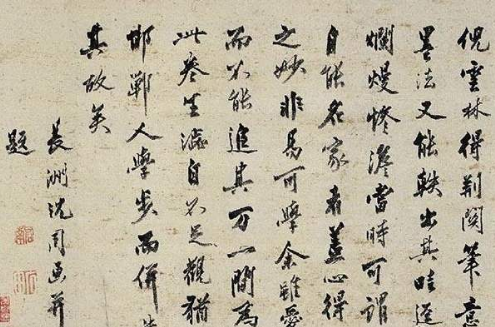 倪雲林得荆関筆意
墨法又能軼出其畦逕
爛熳惨澹當時可謂
自能名家者蓋心得
之妙非易可學余雖愛
而不能追其万一間為
此卷生澁自不足觀猶
邯鄲人學步而併
其故矣
長洲沈周画并
題